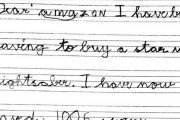 Dear amazon I have b
aving to buy a star w
ightsaber. I have now
1006